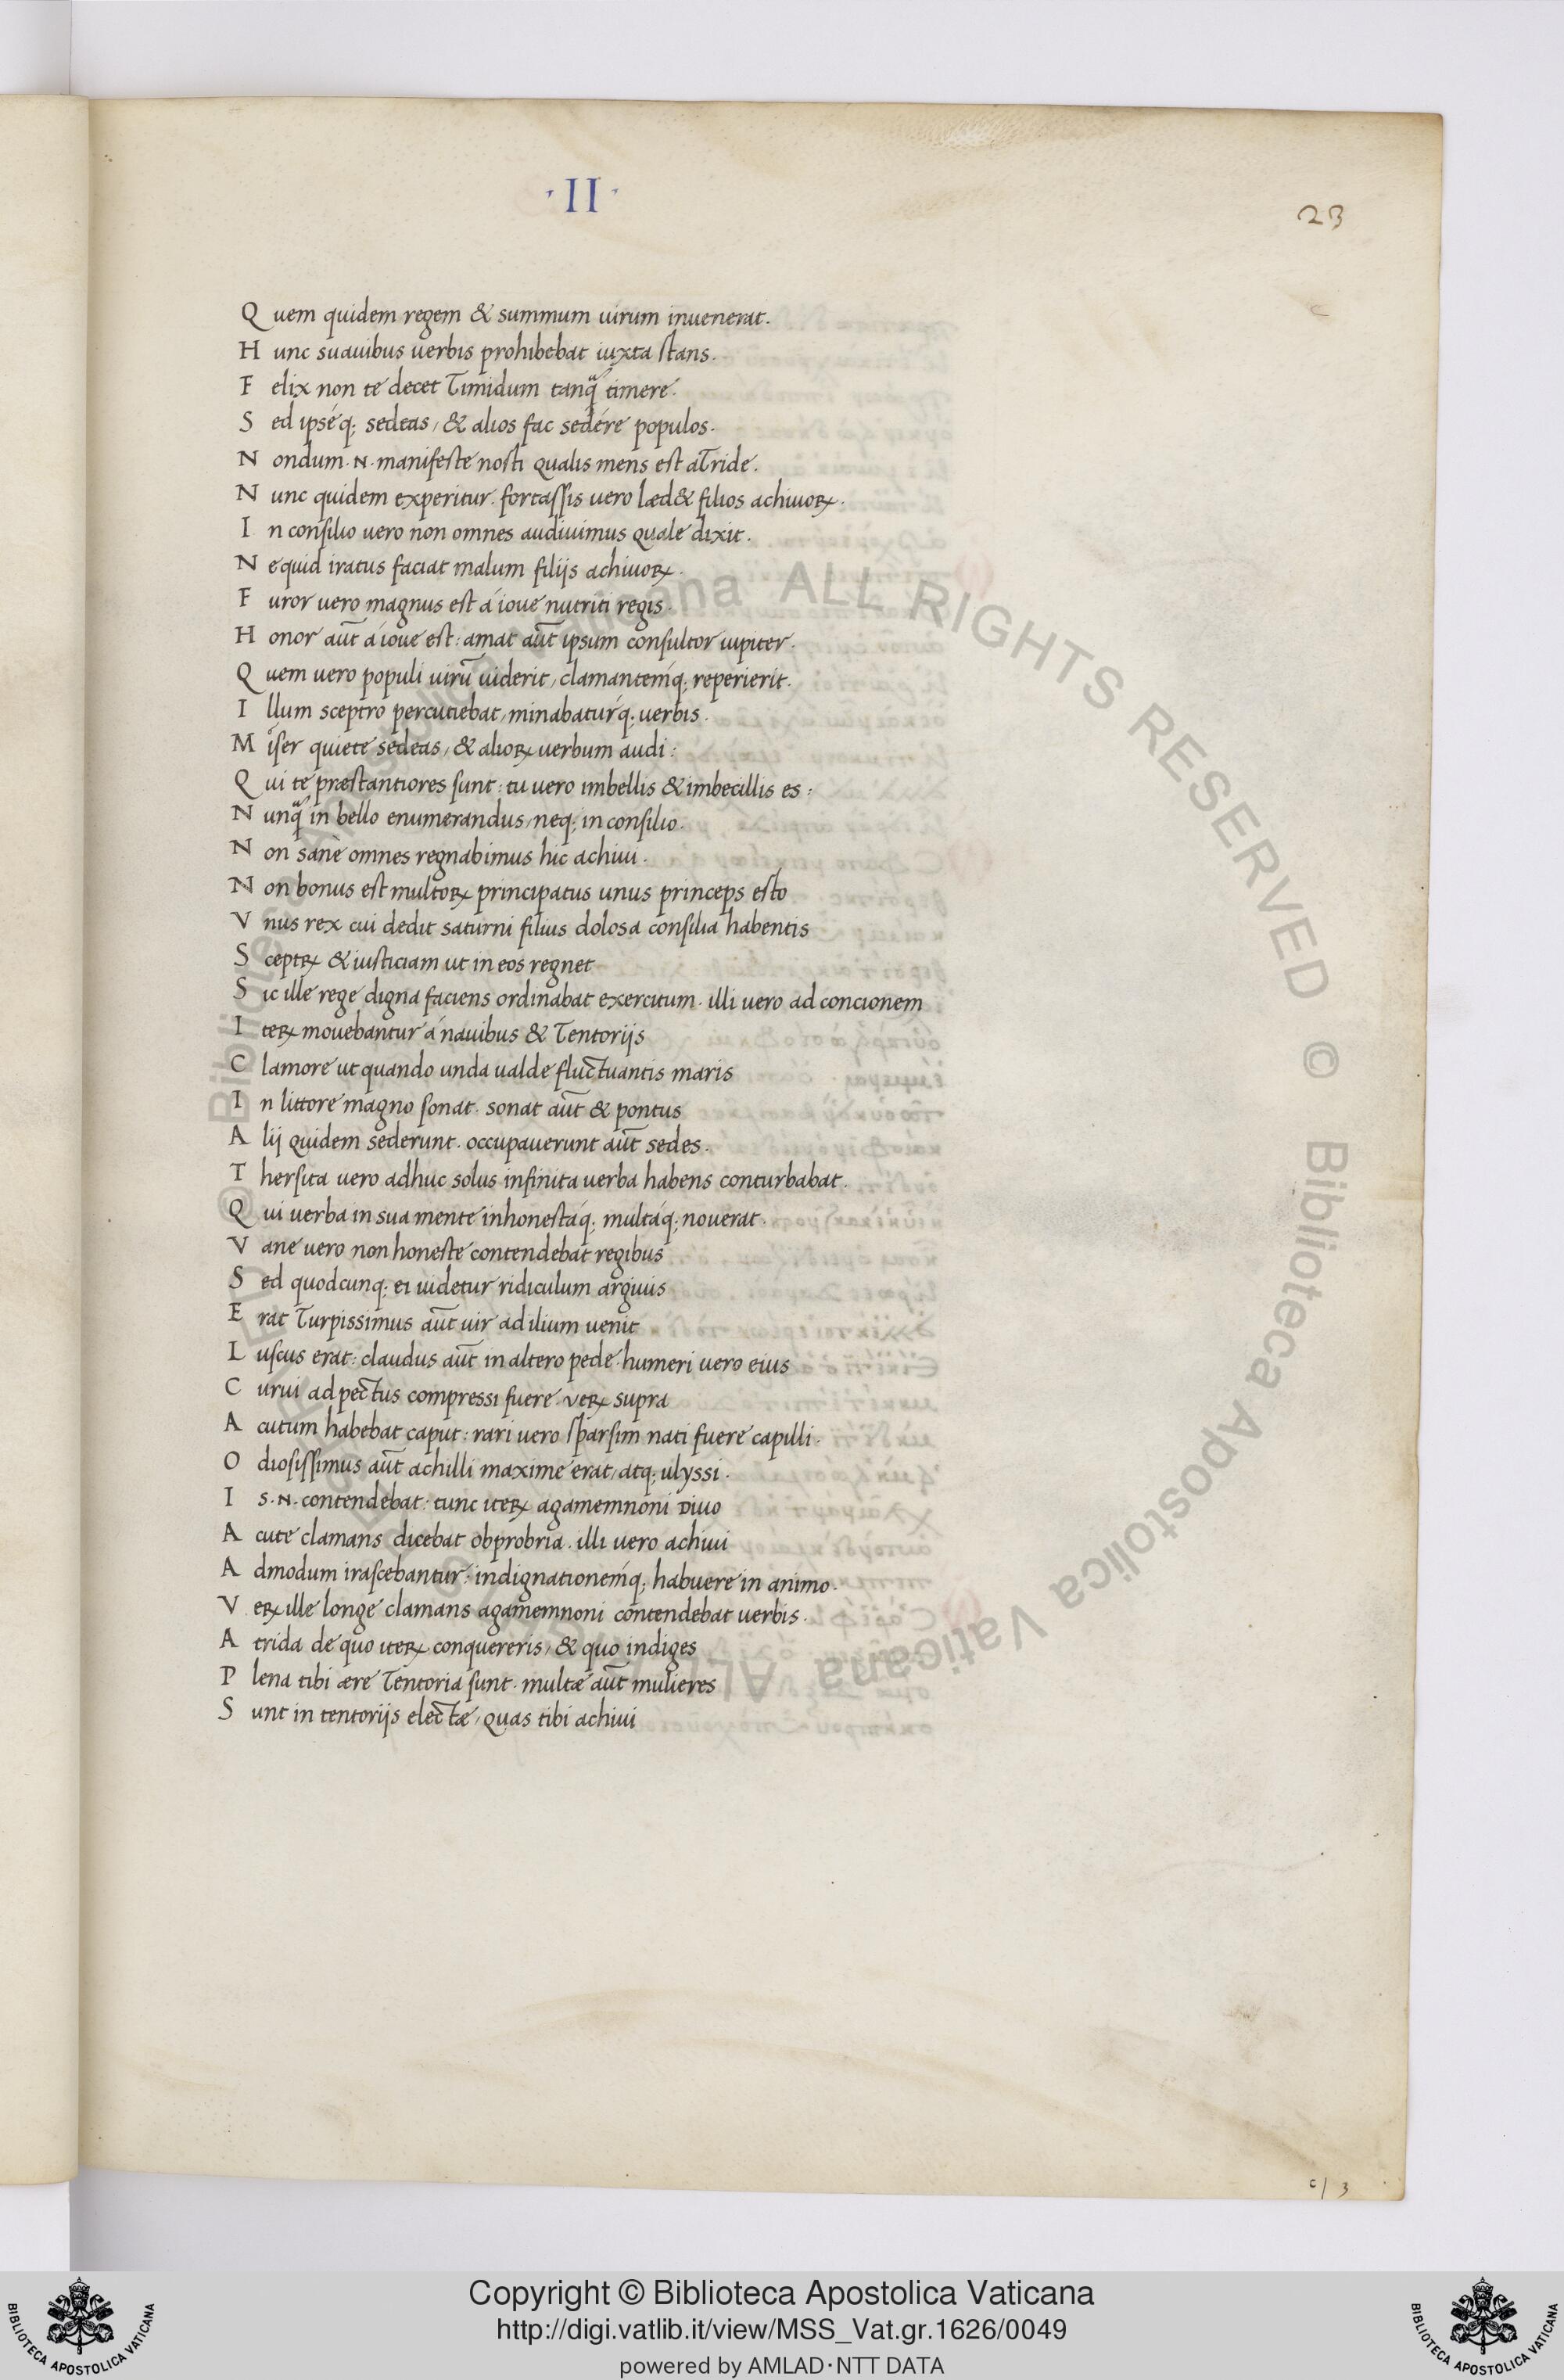 · II ·
23
Quem quidem regem & summum uirum inuenerat.
Hunc suauibus uerbis prohibebat iuxta stans.
Felix non te decet Timidum tanq̃ timere.
Sed ipséq; sedeas, & alios fac sedére populos.
Nondum .N. manifeste nosti qualis mens est aTride.
Nunc quidem experitur. fortassis uero læd& filios achiuoꝝ.
In consilio uero non omnes audiuimus quale dixit.
Nequid iratus faciat malum filijs achiuoꝝ.
Furor uero magnus est á ioue nutriti regis.
Honor aut̃ á ioue est: amat aut̃ ipsum consultor iupiter.
Quem uero populi uirū uiderit, clamantemq́; reperierit.
Illum sceptro percutiebat, minabaturq́; uerbis.
Miser quiete sedeas, & alioꝝ uerbum audi:
Qui te præstantiores sunt: tu uero imbellis & imbecillis es:
Nunq̃ in bello enumerandus, neq; in consilio.
Non sane omnes regnabimus hic achiui.
Non bonus est multoꝝ principatus unus princeps esto
Vnus rex cui dedit saturni filius dolosa consilia habentis
Sceptꝝ & iusticiam ut in eos regnet
Sic ille rege digna faciens ordinabat exercitum. illi uero ad concionem
Iteꝝ mouebantur á nauibus & Tentorijs
Clamore ut quando unda ualde fluctuantis maris
In littore magno sonat. sonat aut̃ & pontus
Alij quidem sederunt. occupauerunt aut̃ sedes.
Thersita uero adhuc solus infinita uerba habens conturbabat.
Qui uerba in sua mente inhonestáq; multáq; nouerat.
Vane uero non honeste contendebat regibus
Sed quodcunq; ei uidetur ridiculum argiuis
Erat Turpissimus aut̃ uir ad ilium uenit
Luscus erat: claudus aut̃ in altero pede. humeri uero eius
Curui ad pectus compressi fuere. ueꝝ supra
Acutum habebat caput: rari uero sparsim nati fuere capilli.
Odiosissimus aut̃ achilli maxime erat, atq; ulyssi.
Is .N. contendebat. tunc iteꝝ agamemnoni diuo
Acute clamans dicebat obprobria. illi uero achiui
Admodum irascebantur: indignationemq́; habuere in animo.
Veꝝ ille longe clamans agamemnoni contendebat uerbis.
Atrida de quo iteꝝ conquereris, & quo indiges
Plena tibi ære Tentoria sunt. multæ aut̃ mulieres
Sunt in tentorijs electæ, quas tibi achiui
c/3
Copyright © Biblioteca Apostolica Vaticana
http://digi.vatlib.it/view/MSS_Vat.gr.1626/0049
powered by AMLAD·NTT DATA
BIBLIOTECA APOSTOLICA VATICANA
BIBLIOTECA APOSTOLICA VATICANA
© Biblioteca Apostolica Vaticana ALL RIGHTS RESERVED © Biblioteca Apostolica Vaticana ALL RIGHTS RESERVED